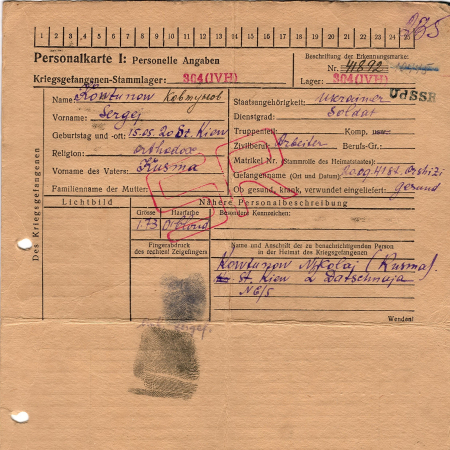 235
1 2 3 4 5 6 7 8 9 10 11 12 13 14 15 16 17 18 19 20 21 22 23 24 25
Personalkarte I: Personelle Angaben
Kriegsgefangenen-Stammlager: 304(IVH)
Beschriftung der Erkennungsmarke
Nr. 41892
Lager: 304(IVH)
UdSSR
Des Kriegsgefangenen
Name: Kowtunow Ковтунов
Vorname: Sergej
Geburtstag und -ort: 15.05.20 St. Kiew
Religion: orthodox
Vorname des Vaters: Kusma
Familienname der Mutter:
Staatsangehörigkeit: Ukrainer
Dienstgrad: Soldat
Truppenteil: Komp. usw.:
Zivilberuf: Arbeiter Berufs-Gr.:
Matrikel Nr. (Stammrolle des Heimatstaates):
Gefangennahme (Ort und Datum):
Ob gesund, krank, verwundet eingeliefert: gesund
Lichtbild
Nähere Personalbeschreibung
Grösse Haarfarbe Besondere Kennzeichen:
1.73 D.blond
Fingerabdruck
des rechten Zeigefingers
Name und Anschrift der zu benachrichtigenden Person
in der Heimat des Kriegsgefangenen
Kowtunow Nikolaj (Kusma).
St. Kiew 2 Datschnaja
N 6/5
Wenden!